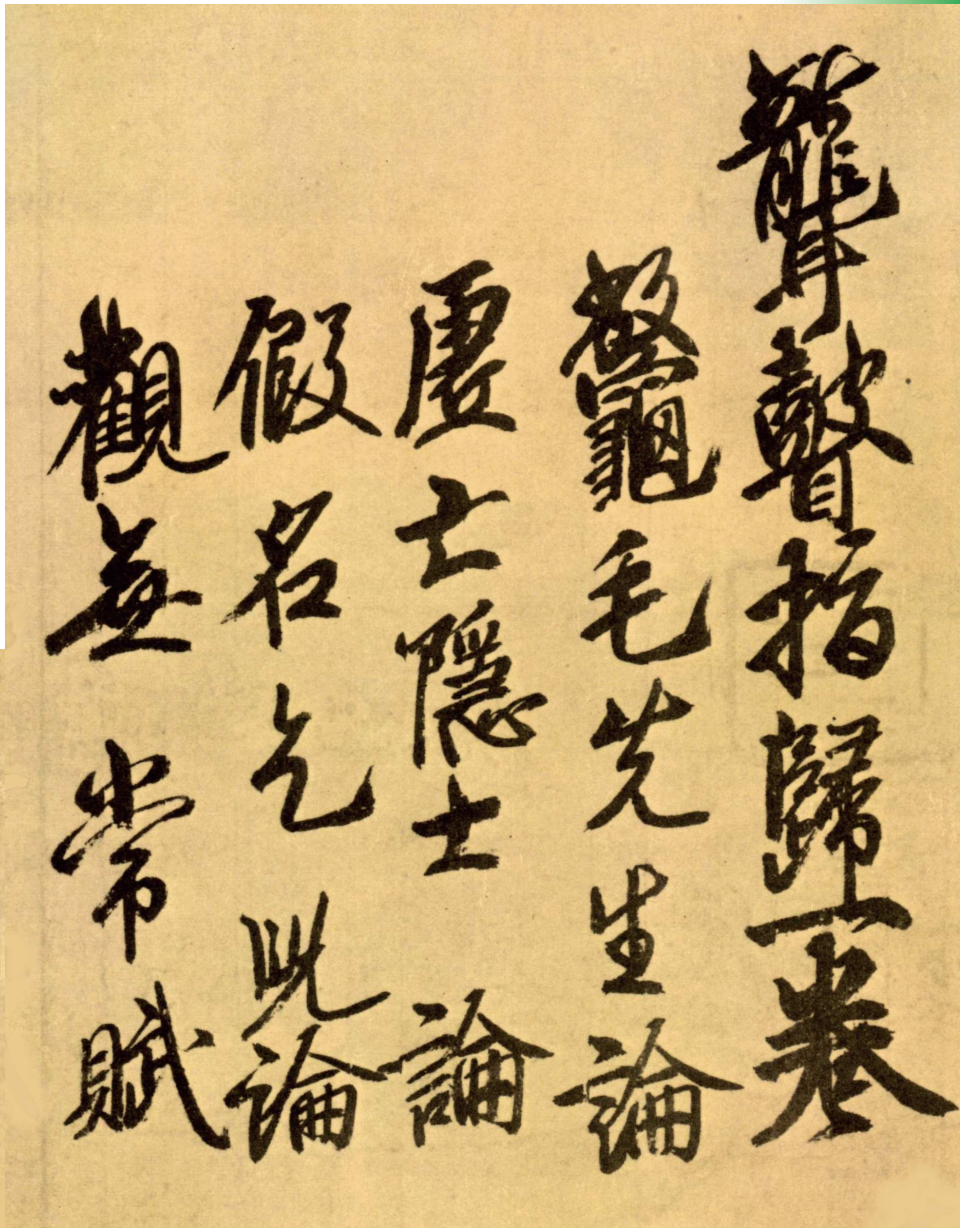 聾瞽指歸一卷
鼈毛先生論
虛亡隱士論
假名乞児論
觀無常賦